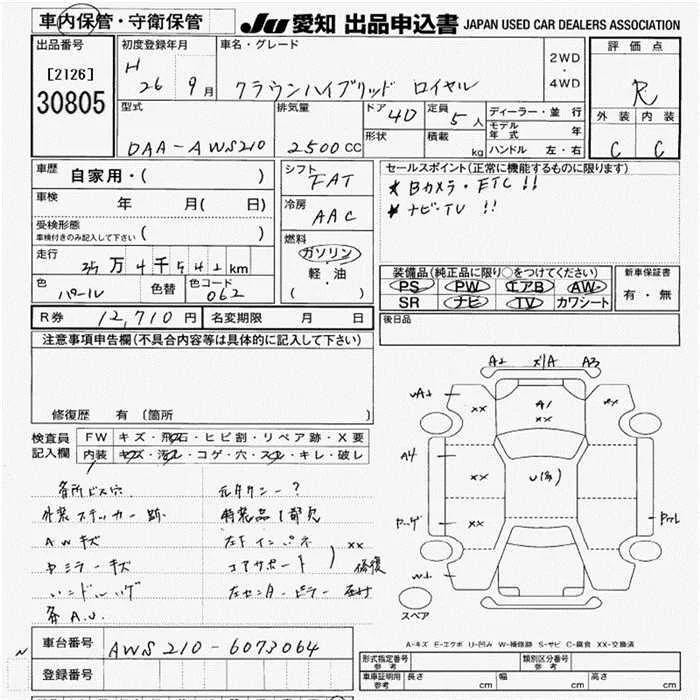 車内保管・守衛保管
JU 愛知 出品申込書 JAPAN USED CAR DEALERS ASSOCIATION
出品番号
[2126]
30805
初度登録年月
H 26 9月
車名・グレード
クラウンハイブリッド ロイヤル
2WD
・
4WD
評価点
R
外装 内装
C C
型式
DAA-AWS210
排気量
2500CC
ドア 4D
定員 5人
形状
積載 kg
ディーラー・並行
モデル年式 年
ハンドル 左・右
車歴 自家用・( )
車検 年 月( 日)
受検形態 ( )
車検付きのみ記入して下さい
走行 万4千542km
色 パール
色替
色コード 062
シフト FAT
冷房 AAC
燃料
ガソリン
・
軽・油
( )
セールスポイント(正常に機能するものに限ります)
* Bカメラ・ETC!!
* ナビ・TV !!
装備品(純正品に限り○をつけてください)
PS PW エアB AW
SR ナビ TV カワシート
新車保証書
有・無
R券 12,710円
名変期限 月 日
後日品
注意事項申告欄(不具合内容等は具体的に記入して下さい)
修復歴 有 〔箇所 〕
検査員記入欄
FW キズ・飛石・ヒビ割・リペア跡・X要
内装 キズ・汚れ・コゲ・穴・スレ・キレ・破レ
各所ビス穴
元タクシー?
外装ステッカー跡
特装品1部欠
AWキズ
左Fインパネ
コアサポート
XX
修復
ルミラーキズ
ハンドル
左センターピラー
各A.U.
A2 XIA A3
XX
A1
XX
XX
A4
XX
U(多)
XX
スペア
A-キズ E-エクボ U-凹み W-補修跡 S-サビ C-腐食 XX-交換済
車台番号 AWS210-6073064
登録番号
形式指定番号
参考
類別区分番号
参考
車庫証明用
参考
長さ cm
幅 cm
高さ cm